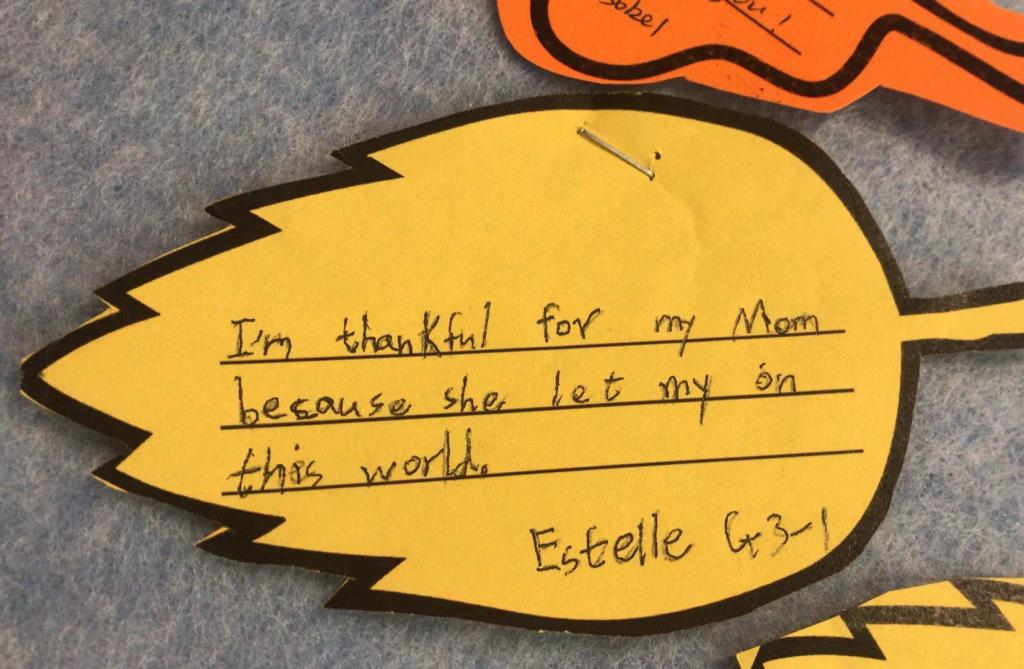 I'm thankful for my Mom
because she let my on
this world.
Estelle G3-1